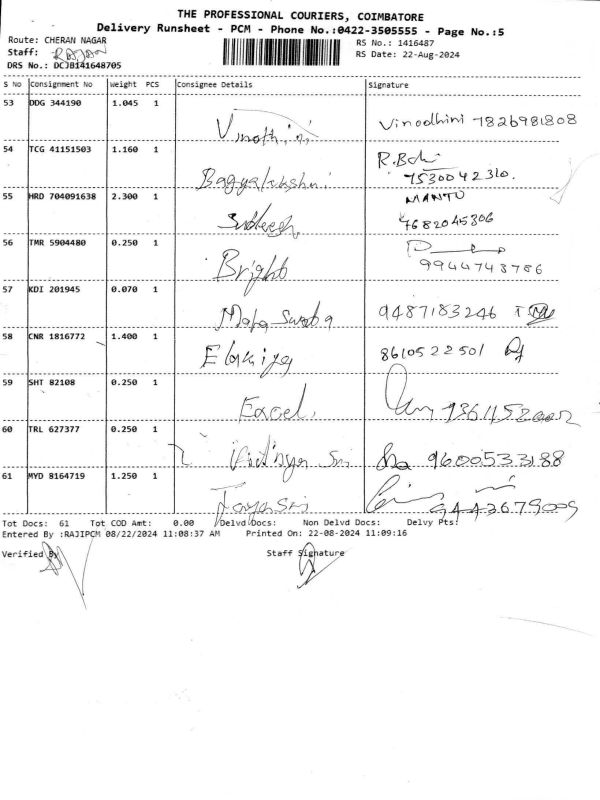 THE PROFESSIONAL COURIERS, COIMBATORE
Delivery Runsheet - PCM - Phone No.:0422-3505555 - Page No.:5
Route: CHERAN NAGAR
RS No.: 1416487
Staff: RAJAN
RS Date: 22-Aug-2024
DRS No.: DCJB141648705
S No Consignment No Weight PCS Consignee Details Signature
53 DDG 344190 1.045 1
Vinothini Vinodhini 7826981808
54 TCG 41151503 1.160 1
Bagyalakshmi 7530042310.
55 HRD 704091638 2.300 1 MANTU
4682045306
56 TMR 5904480 0.250 1
Bright 9944743786
57 KDI 201945 0.070 1
9487183246
58 CNR 1816772 1.400 1
Elakiya 8610522501
59 SHT 82108 0.250 1
Excel.
60 TRL 627377 0.250 1
Sri 9600533188
61 MYD 8164719 1.250 1
9443679009
Tot Docs: 61 Tot COD Amt: 0.00 Delvd Docs: Non Delvd Docs: Delvy Pts:
Entered By :RAJIPCM 08/22/2024 11:08:37 AM Printed On: 22-08-2024 11:09:16
Verified By Staff Signature